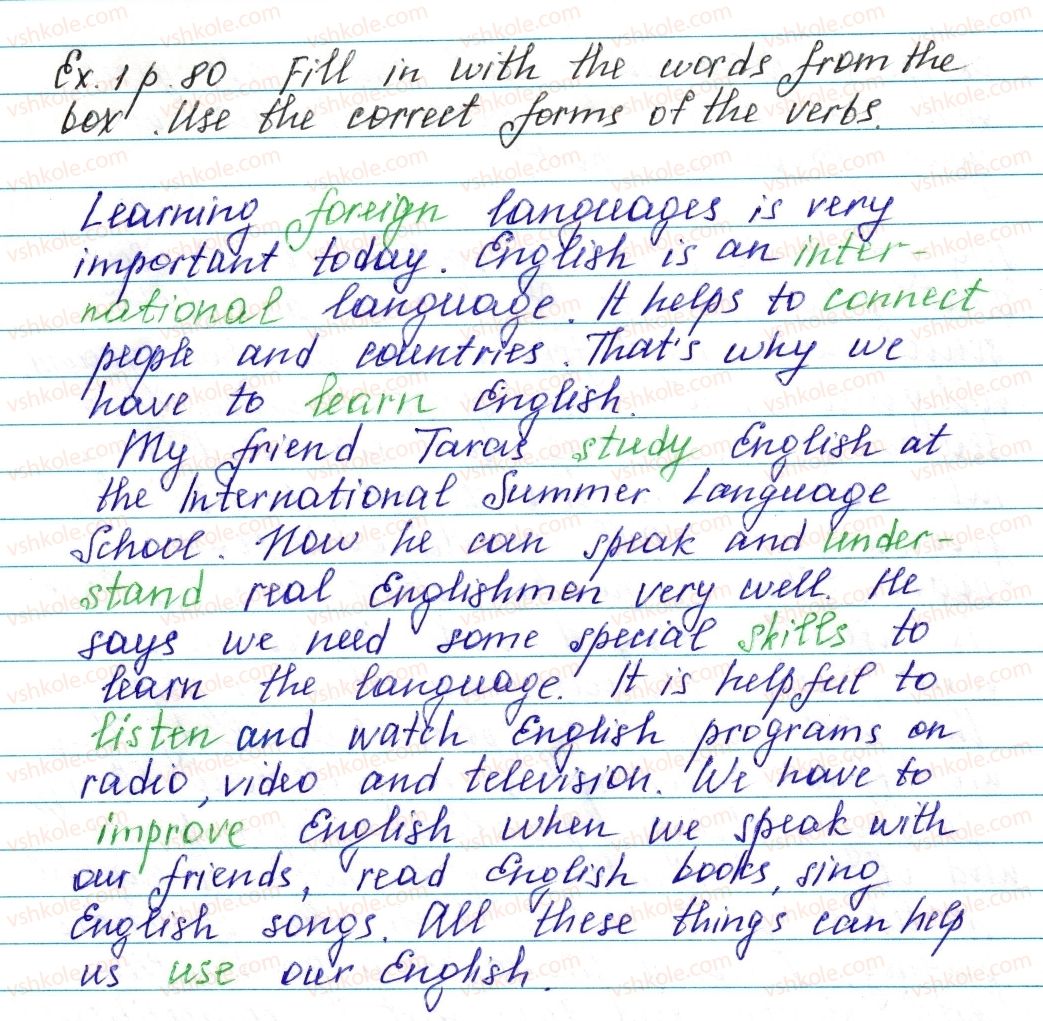 Ex. 1 p. 80 Fill in with the words from the
box. Use the correct forms of the verbs.
Learning foreign languages is very
important today. English is an inter-
national language. It helps to connect
people and countries. That's why we
have to learn English.
My friend Taras study English at
the International Summer Language
School. Now he can speak and under-
stand real Englishmen very well. He
says we need some special skills to
learn the language. It is helpful to
listen and watch English programs on
radio, video and television. We have to
improve English when we speak with
our friends, read English books, sing
English songs. All these things can help
us use our English.
vshkole.com